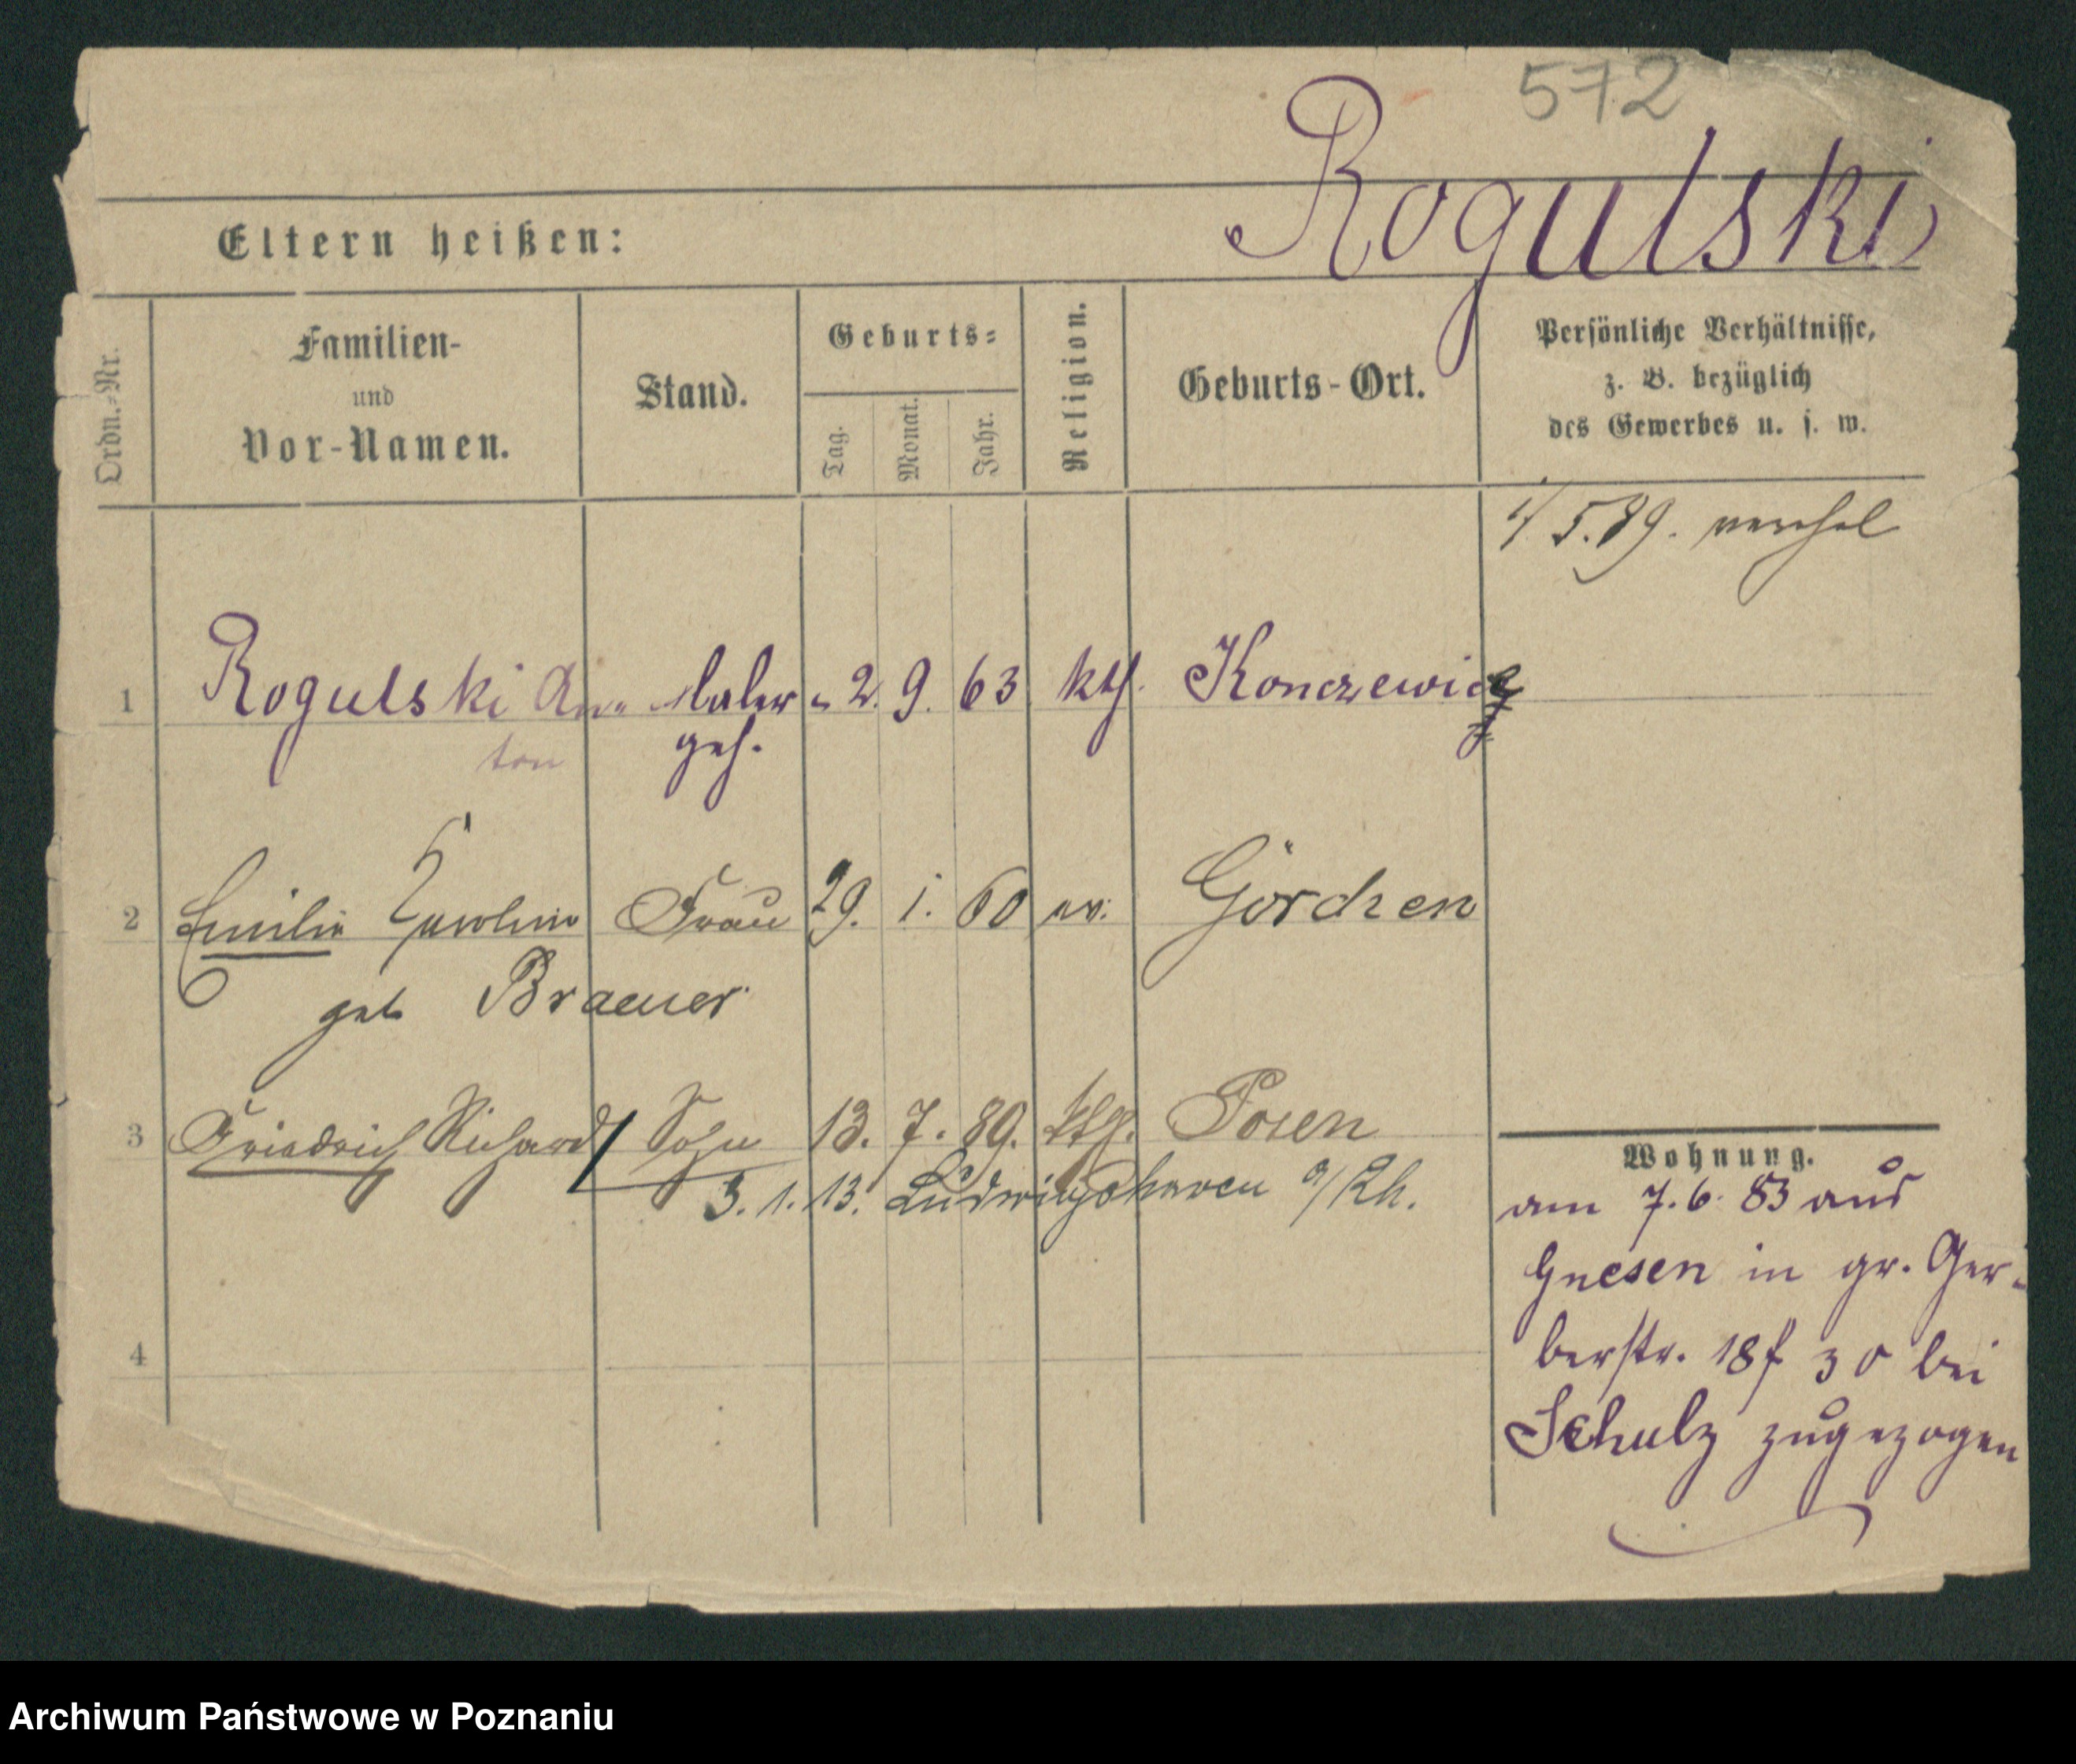 572
Rogulski
Eltern heißen:
Ordn.-Nr.
Familien-
und
Vor-Namen.
Stand.
Geburts=
Tag.
Monat.
Jahr.
Religion.
Geburts-Ort.
Persönliche Verhältnisse,
z. B. bezüglich
des Gewerbes u. s. w.
5.89.
1 Rogulski An- Maler 2. 9. 63 kth. Konczewicz
ton geh.
2 Emilie Karoline Frau 29. 1. 60 ev. Görchen
geb Braeuer
3 Friedrich Richard Sohn 13. 7. 89. kth. Posen
3. 1. 13. Ludwigshaven a/Rh.
4
Wohnung.
am 7. 6. 83 aus
Gnesen in gr. Ger-
berstr. 18 30 bei
Schulz zugezogen
Archiwum Państwowe w Poznaniu